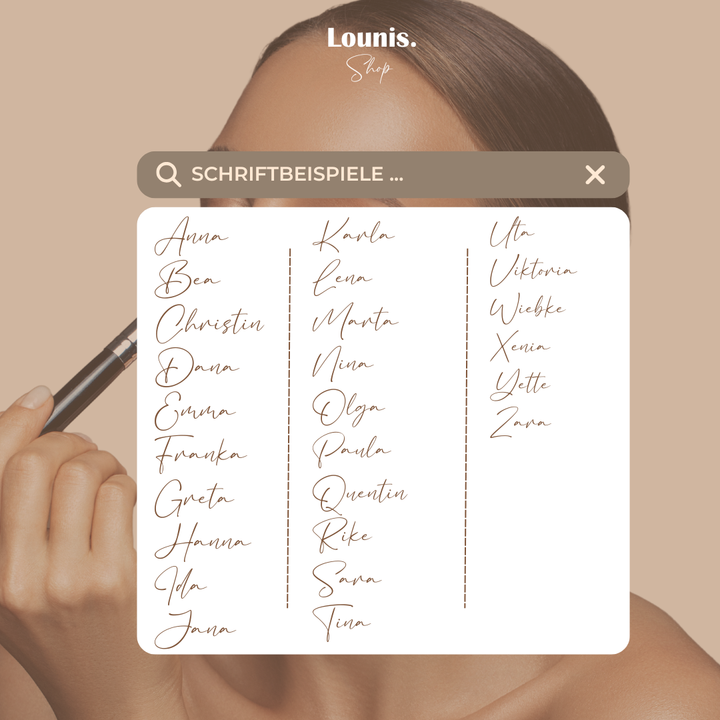 Lounis.
Shop
SCHRIFTBEISPIELE ...
Anna
Bea
Christin
Dana
Emma
Franka
Greta
Hanna
Ida
Jana
Karla
Lena
Marta
Nina
Olga
Paula
Quentin
Rike
Sara
Tina
Uta
Viktoria
Wiebke
Xenia
Yette
Zara